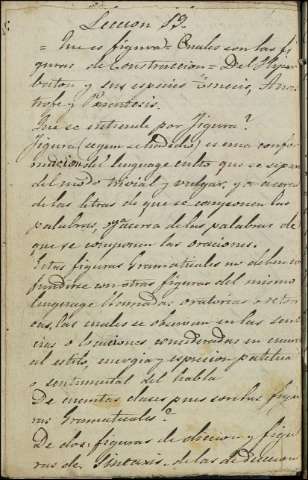 Leccion 13.
= Que es figura? = Cuales son las fi
guras de Construccion = Del Hyper
baton y sus especies Tmesis, Anas
trofe y Parentesis.
Que se entiende por figura?
Figura (segun se ha dicho) es una confor
macion del lenguage en la que se separa
del modo trivial y vulgar, ya acerca
de las letras de que se componen las
palabras, ya acerca de las palabras de
que se componen las oraciones.
Estas figuras Gramaticales no deben co
fundirse con otras figuras del mismo
lenguage llamadas oratorias o retori
cas, las cuales se observan en las senten
cias o locuciones consideradas en cuanto
al estilo, energia y espresion patetica
o sentimental del habla
De cuantas clases pues son las figu
ras Gramaticales?
De dos: figuras de diccion y figu
ras de Sintaxis. de las de diccion